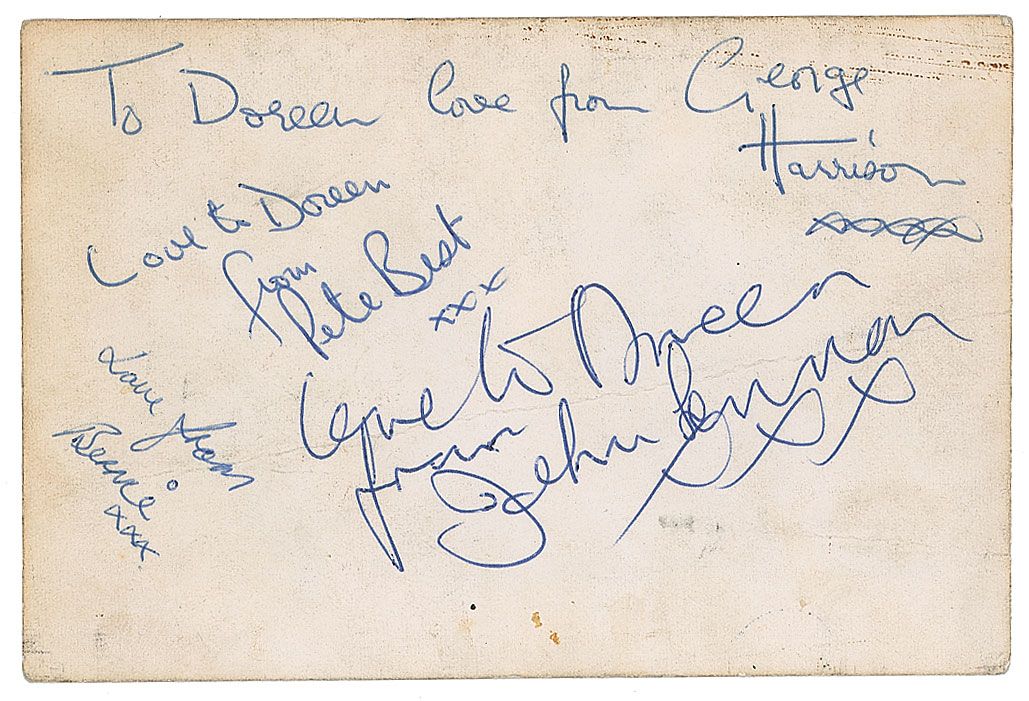 To Doreen love from George
Harrison
xxxx
Love to Doreen
from
Pete Best
xxx
Love to Doreen
from
John Lennon
xxx
Love from
Bernie
xxx